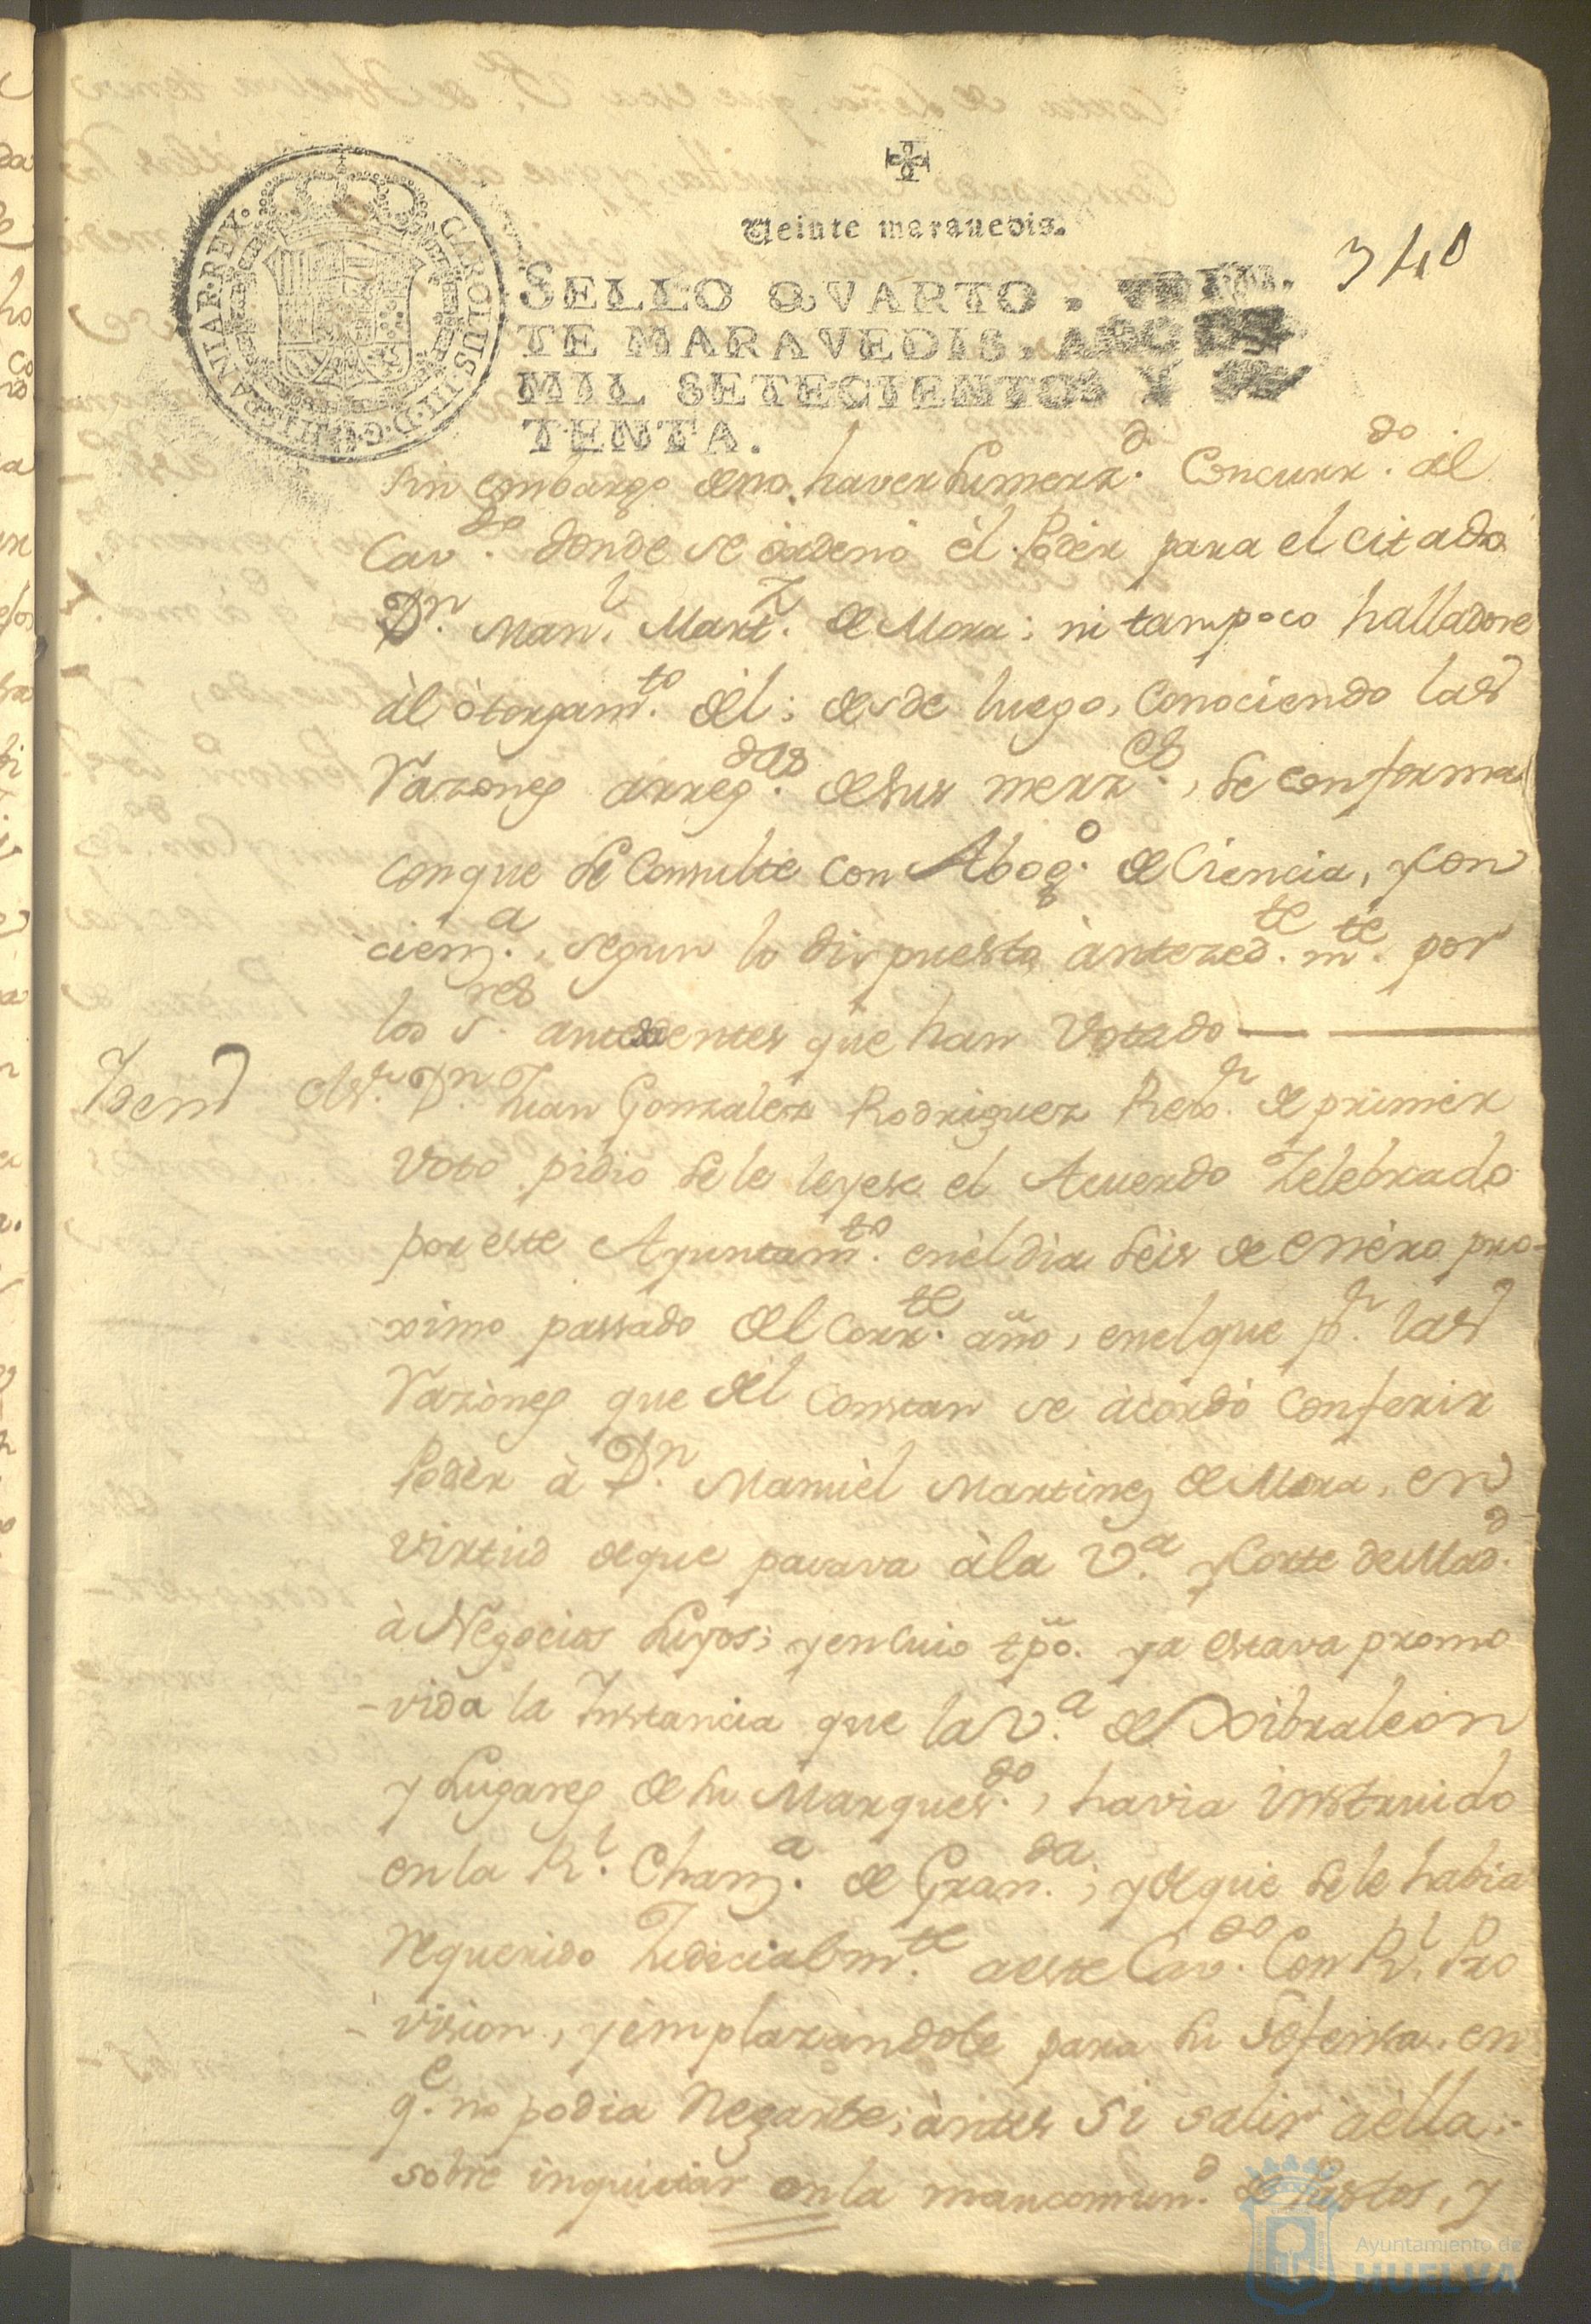 CAROLUS·III·D·G·HISPANIAR·REX·
Veinte maravedis.
340
SELLO QVARTO. VEIN-
TE MARAVEDIS, AÑO DE
MIL SETECIENTOS Y SE
TENTA.
sin embargo de no haver su merz.d Concurr.do al
Cav.do donde se órdenó él Podér para el citado
D.n Man.l Mart.z de Mora; ni tampoco halladose
àl òtorgam.to dél; desde luego, Conociendo las
razones arreg.das de sus merz.es, se conforma
con que se Consulte con Abog.o de Ciencia, y con
cienz.a, segun lo dispuesto àntezed.te m.te por
los S.res antedentes que han Votado
Idem
El S.r D.n Juan Gonzalez Rodriguez Rexo.r de primer
Voto pidio se le leyese el Acuerdo Zelebrado
por este Ayuntam.to en èl dia séis de enèro pro-
ximo passado del Corr.te año, en el que p.r las
razònes que dél Constan se àcordó Conferir
Podèr à D.n Manuèl Martinez de Mora, en
Virtud de que pasava àla V.a y Corte de Mad.d
à Negocios suyos; y en cuio tpo. ya estava promo
-vida la Instancia que la V.a de Xibraleon
y Lugares de su Marques.do, havia instruido
en la R.l Chanz.a de Gran.da; y de que se le habia
requerido Judicialm.te a este Cav.do Con R.l Pro
-vision, y emplazandole para su defensa, en
q.e no podia Negarse; àntes Si salir à èlla;
sobre inquietar en la mancomun.d de Pastos, y
Ayuntamiento de
HUELVA